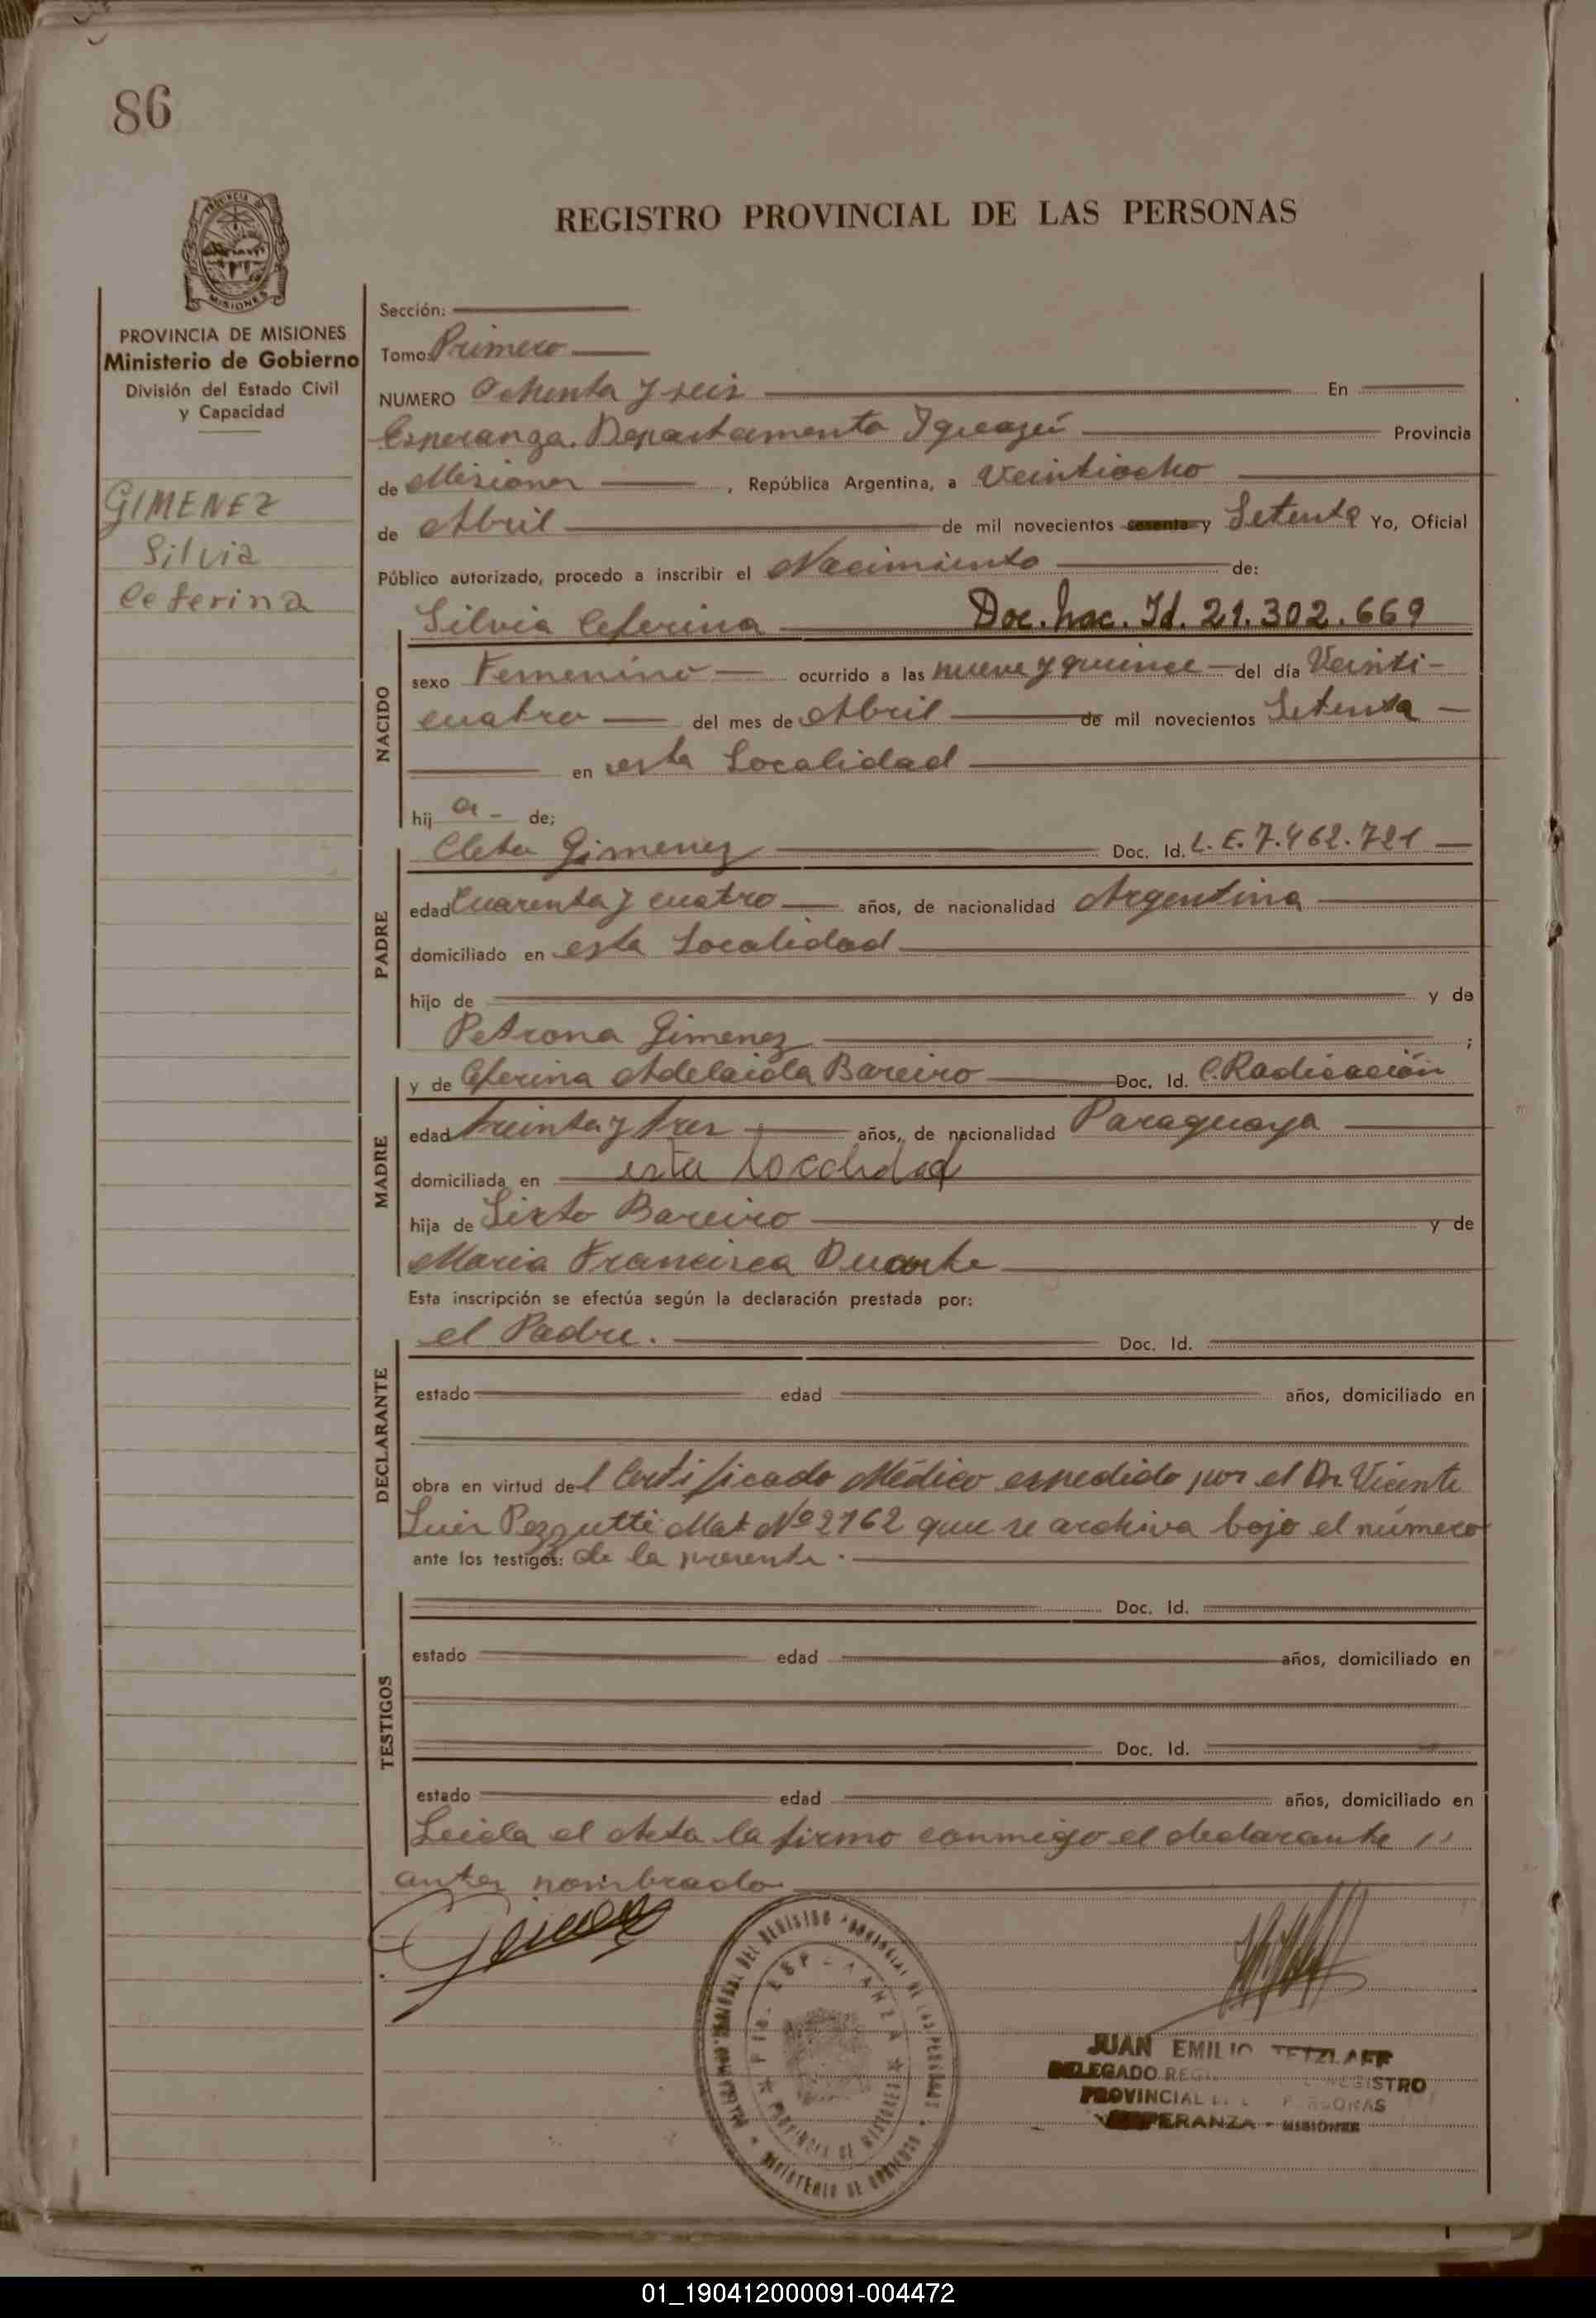 86
REGISTRO PROVINCIAL DE LAS PERSONAS
PROVINCIA DE
MISIONES
PROVINCIA DE MISIONES
Ministerio de Gobierno
División del Estado Civil
y Capacidad
GIMENEZ
Silvia
Ceferina
Sección:
Tomo: Primero
NUMERO Ochenta y seis En
Esperanza. Departamento Iguazú Provincia
de Misiones , República Argentina, a Veintiocho
de Abril de mil novecientos sesenta y Setenta Yo, Oficial
Público autorizado, procedo a inscribir el Nacimiento de:
Silvia Ceferina Doc. Nac. Id. 21.302.669
NACIDO
sexo Femenino ocurrido a las nueve y quince del día Veinti-
cuatro del mes de Abril de mil novecientos Setenta
en esta Localidad
hij a de;
Cleto Gimenez Doc. Id. L.E. 7.462.721
PADRE
edad Cuarenta y cuatro años, de nacionalidad Argentina
domiciliado en esta Localidad
hijo de y de
Petrona Gimenez ;
y de Ceferina Adelaida Bareiro Doc. Id. C. Radicación
MADRE
edad treinta y tres años, de nacionalidad Paraguaya
domiciliada en esta localidad
hija de Sixto Bareiro y de
Maria Francisca Duarte
Esta inscripción se efectúa según la declaración prestada por:
el Padre. Doc. Id.
DECLARANTE
estado edad años, domiciliado en
obra en virtud del Certificado Médico espedido por el Dr. Vicente
Luis Pezzutti Mat Nº 2762 que se archiva bajo el número
ante los testigos: de la presente.
Doc. Id.
TESTIGOS
estado edad años, domiciliado en
Doc. Id.
estado edad años, domiciliado en
Leida el Acta la firmo conmigo el declarante
antes nombrado
ESPERANZA
PROVINCIA DE MISIONES
MINISTERIO DE GOBIERNO
JUAN EMILIO TETZLAFF
DELEGADO REGISTRO
PROVINCIAL PERSONAS
ESPERANZA - MISIONES
01_190412000091-004472